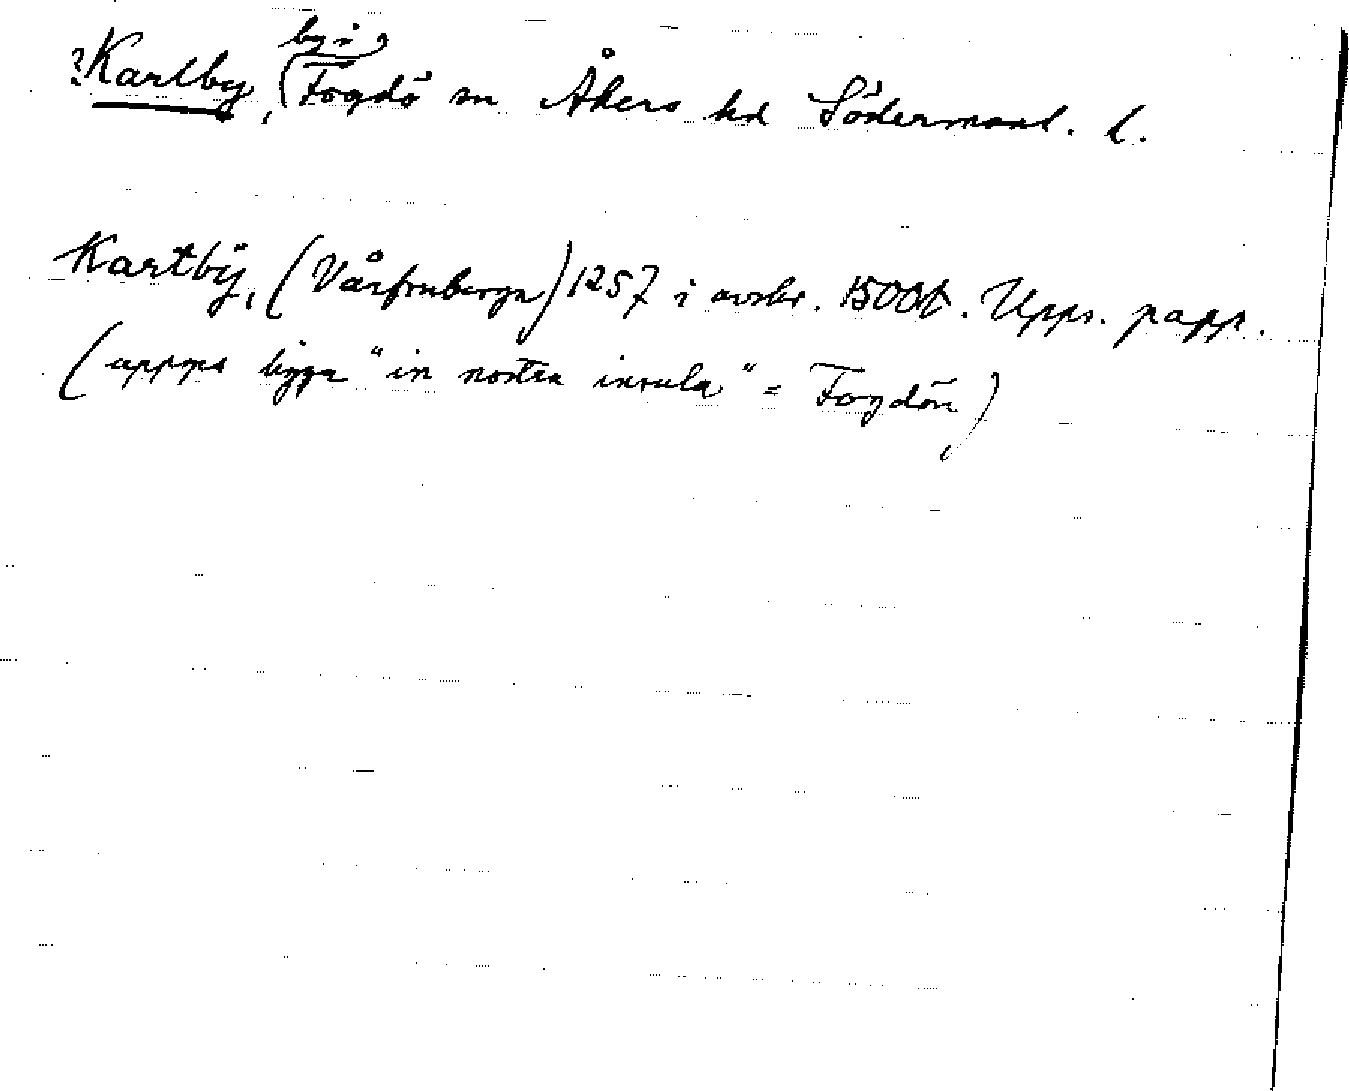 by i
?Kartby, (Fogdö sn Åkers hd Södermanl. l.
Kartbÿ, (Vårfruberga) 1257 i avskr. 1500t. Upps. papp.
(uppges ligga "in nostra insula" = Fogdön)